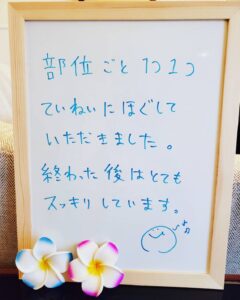 部位ごと 1つ1つ
ていねいにほぐして
いただきました。
終わった後はとても
スッキリしています。